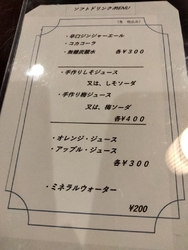 ソフトドリンクMENU
(税 税込み)
・辛口ジンジャーエール
・コカコーラ
・無糖炭酸水 各¥300
・手作りしそジュース
又は、しそソーダ
・手作り梅ジュース
又は、梅ソーダ
各¥400
・オレンジ・ジュース
・アップル・ジュース
各¥300
・ミネラルウォーター
¥200